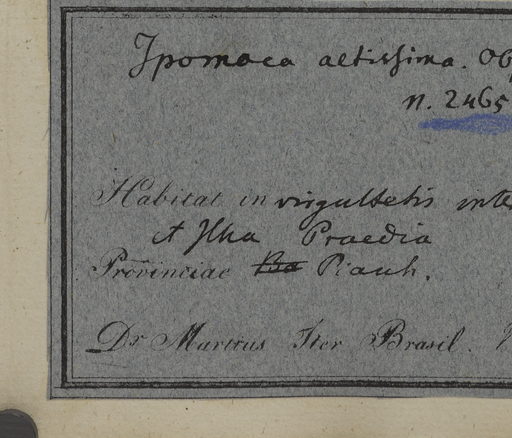 Ipomaea altissima. Ob
n. 2465
Habitat in virgultetis inte
et Ilha Praedia
Provinciae Piauh.
Dr Martius Iter Brasil.